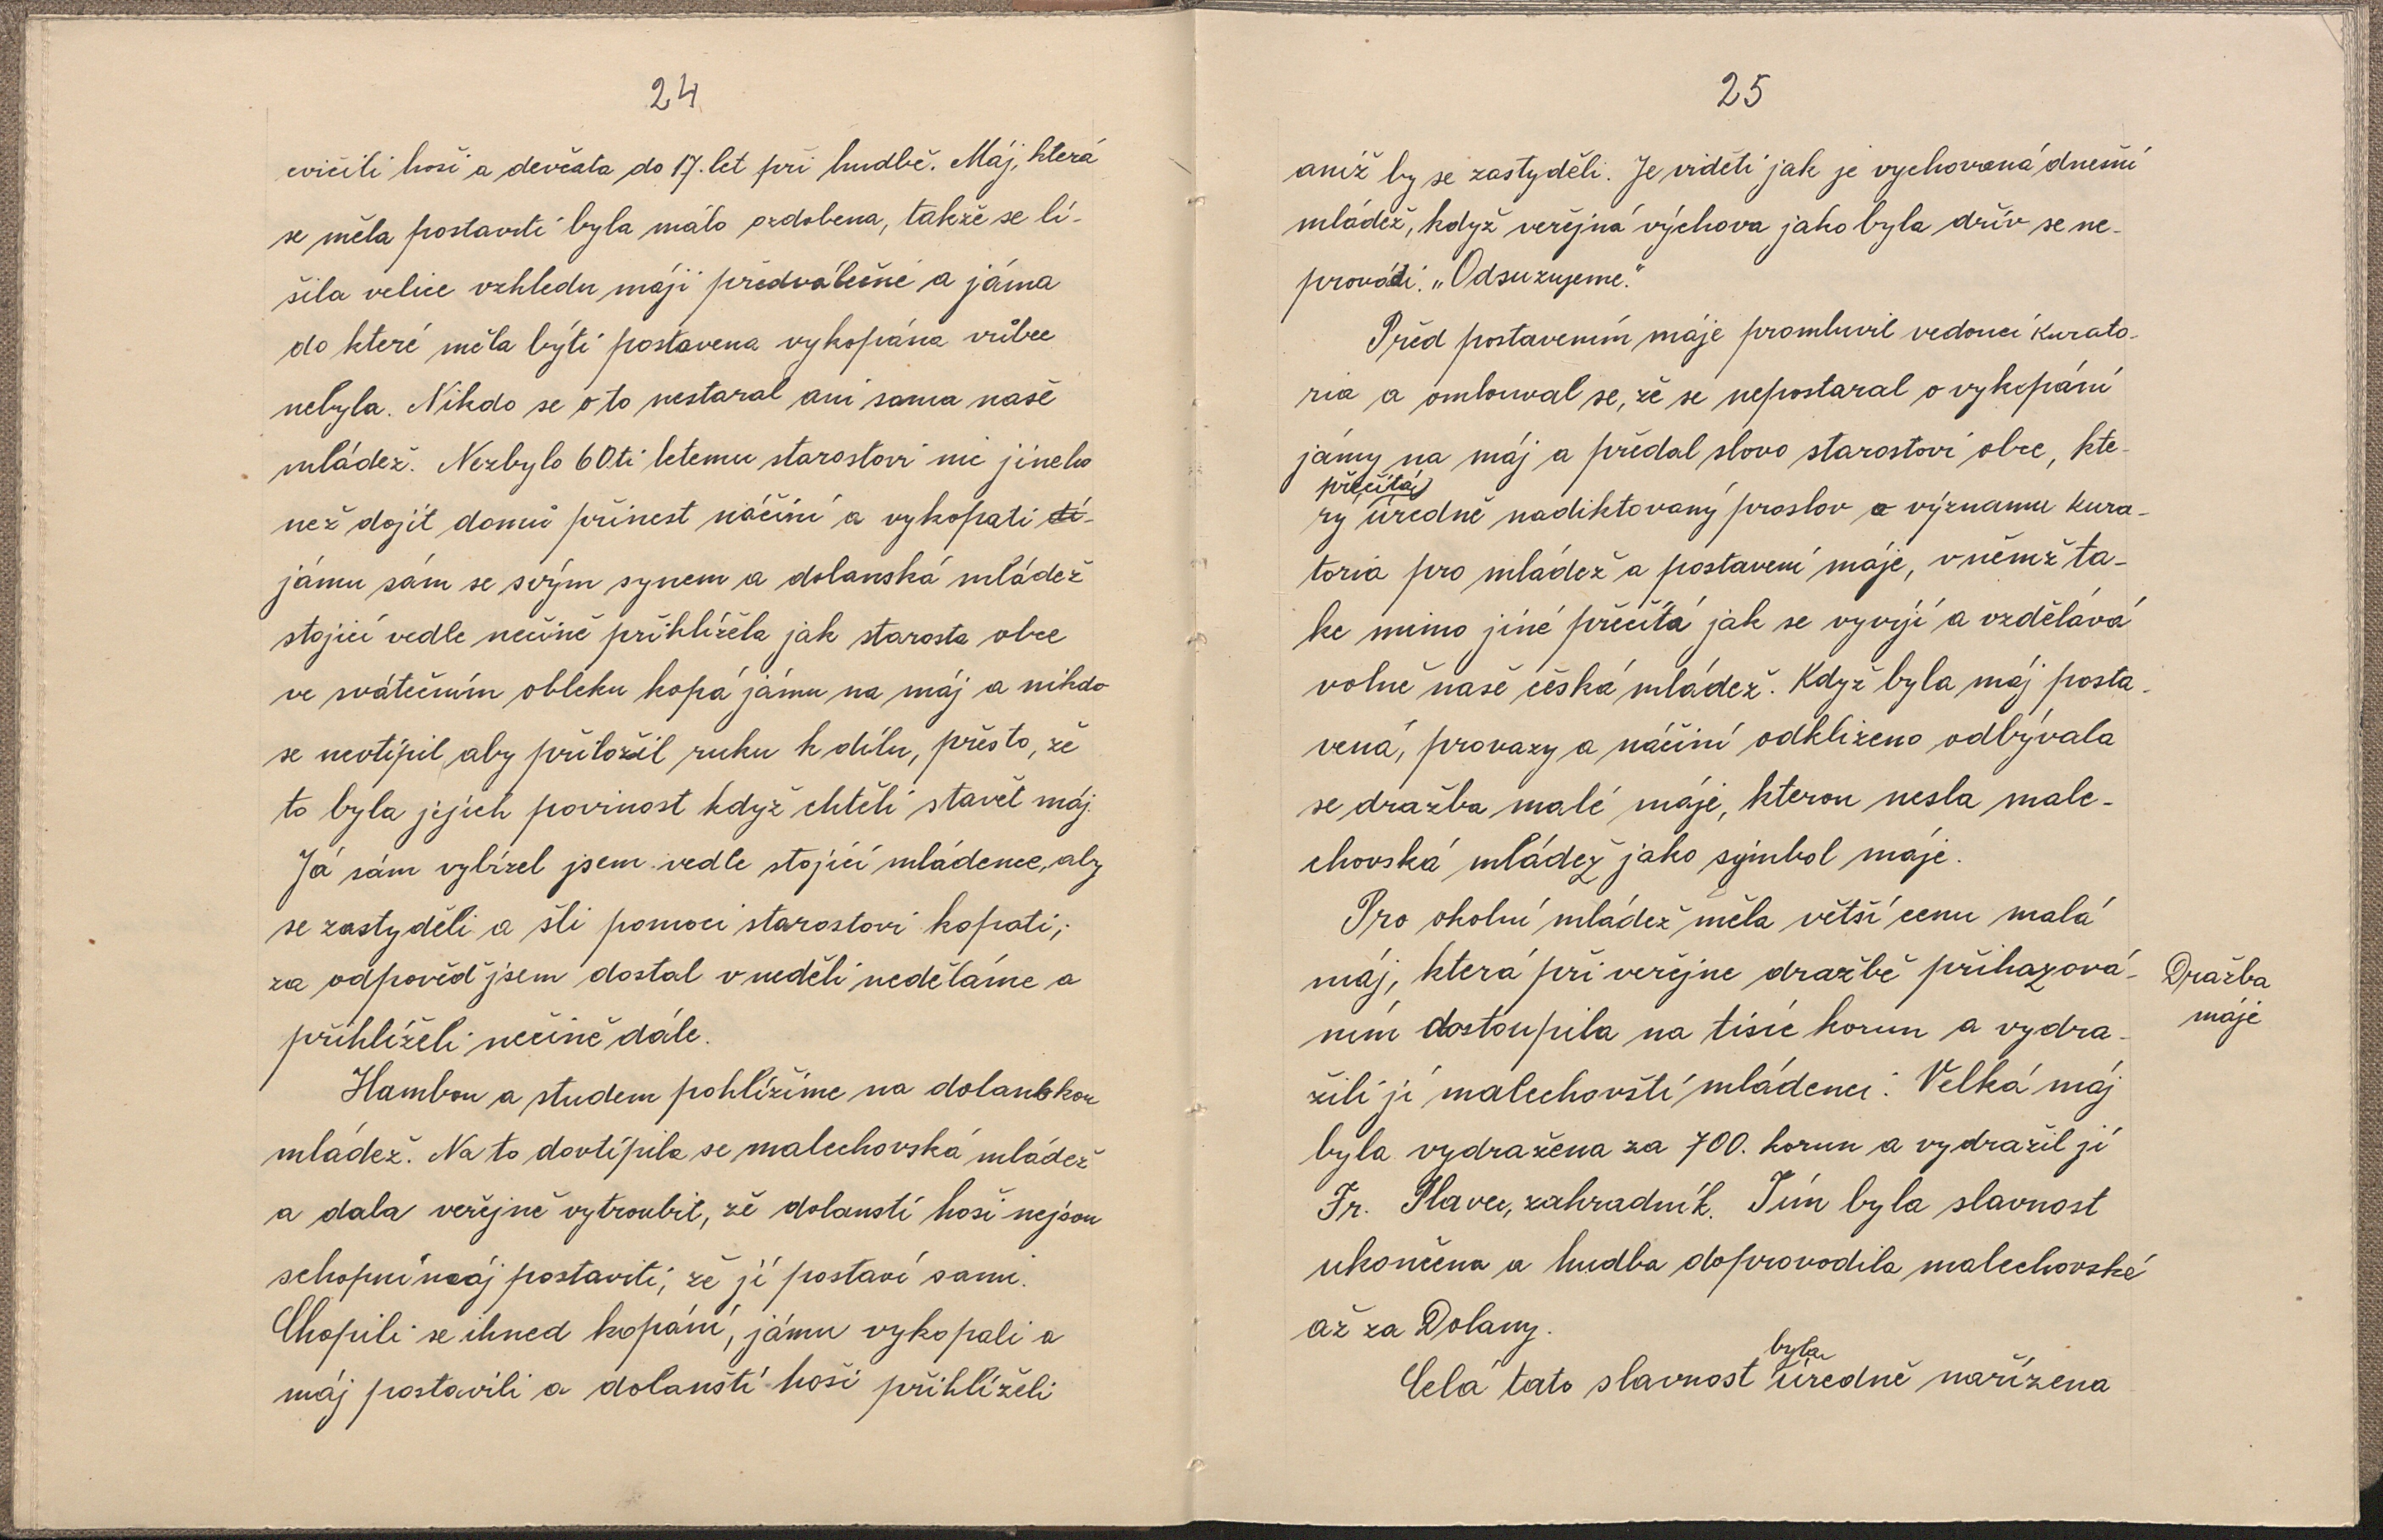 24
cvičili hoši a devčata do 17. let při hudbě. Máj, která
se měla postaviti byla málo ozdobena, takže se li-
šila velice vzhledu máji předválečné a jáma
do které měla býti postavena vykopána vůbec
nebyla. Nikdo se o to nestaral ani sama naše
mládež. Nezbylo 60ti letemu starostovi nic jineho
než dojít domů přinest náčiní a vykopati
jámu sám se svým synem a dolanská mládež
stojící vedle nečině přihlížela jak starosta obce
ve svátečním obleku kopá jámu na máj a nikdo
se neotípil aby přiložil ruku k dílu, přesto, že
to byla jejich povinost když chtěli stavět máj.
Já sám vybízel jsem vedle stojící mládence, aby
se zastyděli a šli pomoci starostovi kopati;
za odpověď jsem dostal v neděli neděláme a
přihlíželi nečině dále.
Hambou a studem pohlížíme na dolanskou
mládež. Na to dovtípila se malechovská mládež
a dala veřejně vytroubit, že dolanstí hoši nejsou
schopní máj postaviti, že jí postaví sami.
Chopili se ihned kopání, jámu vykopali a
máj postavili a dolanští hoši přihlíželi
25
aniž by se zastyděli. Je viděti jak je vychovaná dnešní
mládež, když veřejná výchova jako byla dřív se ne-
provádí. „Odsuzujeme."
Před postavením máje promluvil vedoucí kurato-
ria a omlouval se, že se nepostaral o vykopání
jámy na máj a předal slovo starostovi obce, kte-
přečítá
rý úředně nadiktovaný proslov o významu kura-
toria pro mládež a postavení máje, v němž ta-
ke mimo jiné přečítá jak se vyvíjí a vzdělává
volně naše česká mládež. Když byla máj posta-
vená, provazy a náčiní odklizeno odbývala
se dražba malé máje, kterou nesla male-
chovská mládež jako symbol máje.
Pro okolní mládež měla větší cenu malá
máj, která při veřejne dražbě přihazová-
ním dostoupila na tisíc korun a vydra-
žili jí malechovští mládenci. Velká máj
byla vydražena za 700. korun a vydražil jí
Fr. Plavec, zahradník. Tím byla slavnost
ukončena a hudba doprovodila malechovské
až za Dolany.
byla
Celá tato slavnost úředně nařízena
Dražba
máje